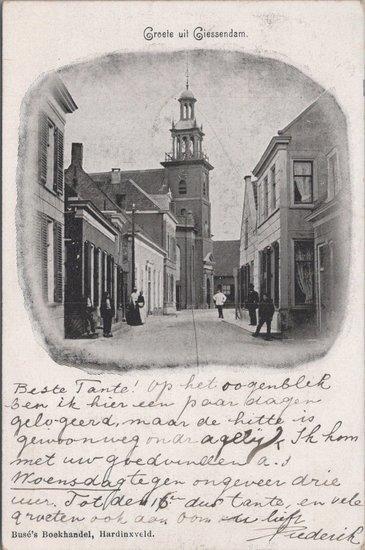 Groete uit Giessendam.
Beste Tante! Op het oogenblik
ben ik hier een paar dagen
gelogeerd, maar de hitte is
gewoonweg ondragelijk, Ik kom
met uw goedvinden a.s
Woensdag tegen ongeveer drie
uur. Tot den 16en dus tante, en vele
groeten ook aan oom
Frederik
Busé's Boekhandel, Hardinxveld.